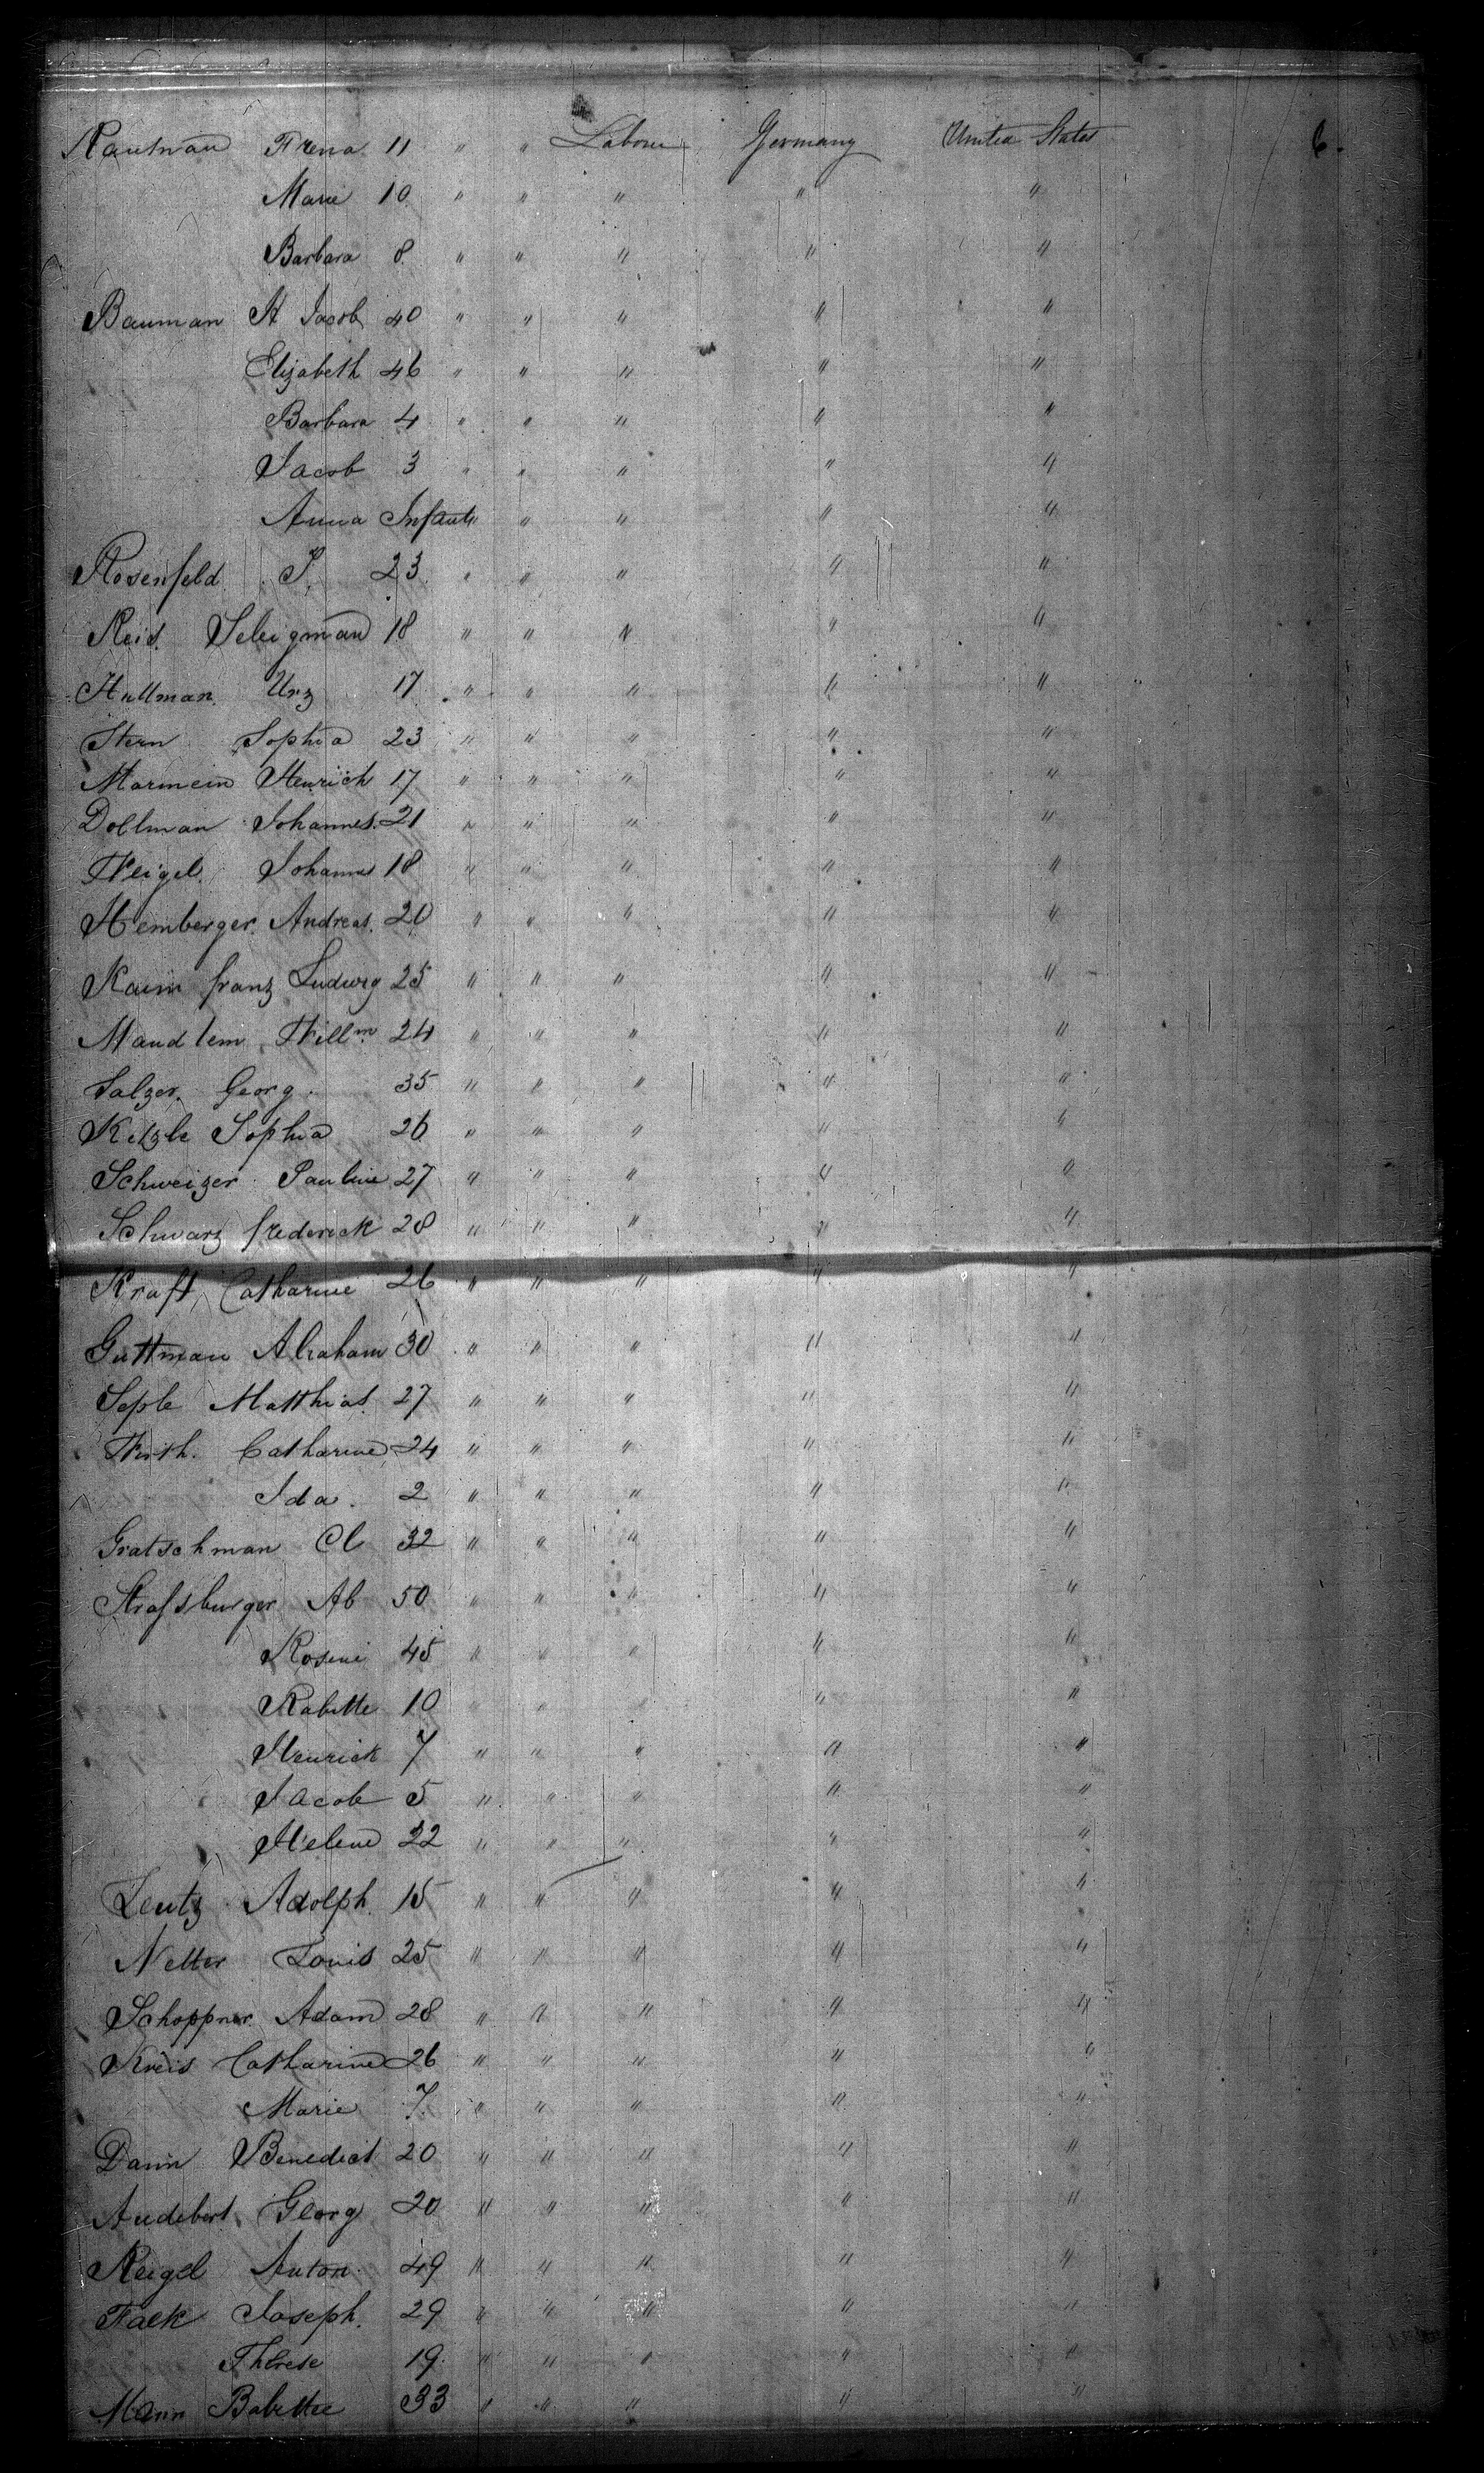 Kautman Frena 11 " " Labour Germany United States 6.
Marie 10 " " " " "
Barbara 8 " " " " "
Bauman St Jacob 40 " " " " "
Elizabeth 46 " " " " "
Barbara 4 " " " " "
Jacob 3 " " " " "
Anna Infant " " " " "
Rosenfeld S. 23 " " " " "
Reis. Seligman 18 " " " " "
Hullman Urz 17 " " " " "
Stern Sophia 23 " " " " "
Marmein Henrich 17 " " " " "
Dollman Johannes. 21 " " " " "
Weigel. Johannes 18 " " " " "
Hemberger. Andreas. 20 " " " " "
Kaim franz Ludwig 25 " " " " "
Maudlem Willm 24 " " " " "
Salzer. Georg. 35 " " " " "
Ketzle Sophia 26 " " " " "
Schweizer Pauline 27 " " " " "
Schwarz frederick 28 " " " " "
Kraft, Catharine 26 " " " " "
Guttman Abraham 30 " " " " "
Seple Matthias 27 " " " " "
Wirth. Catharine 24 " " " " "
Ida. 2 " " " " "
Gratschman Cl 32 " " " " "
Strafsburger Ab 50 " " " " "
Rosine 45 " " " " "
Babette 10 " " " " "
Henrick 7 " " " " "
Jacob 5 " " " " "
Helene 22 " " " " "
Leutz Adolph. 15 " " " " "
Netter Louis 25 " " " " "
Schoppner. Adam 28 " " " " "
Kreis Catharine 26 " " " " "
Marie 7. " " " " "
Dann Benedict 20 " " " " "
Audebert Georg 20 " " " " "
Reigel Anton. 49 " " " " "
Falk Joseph. 29 " " " " "
Therese 19. " " " " "
Mann Babettee 33 " " " " "